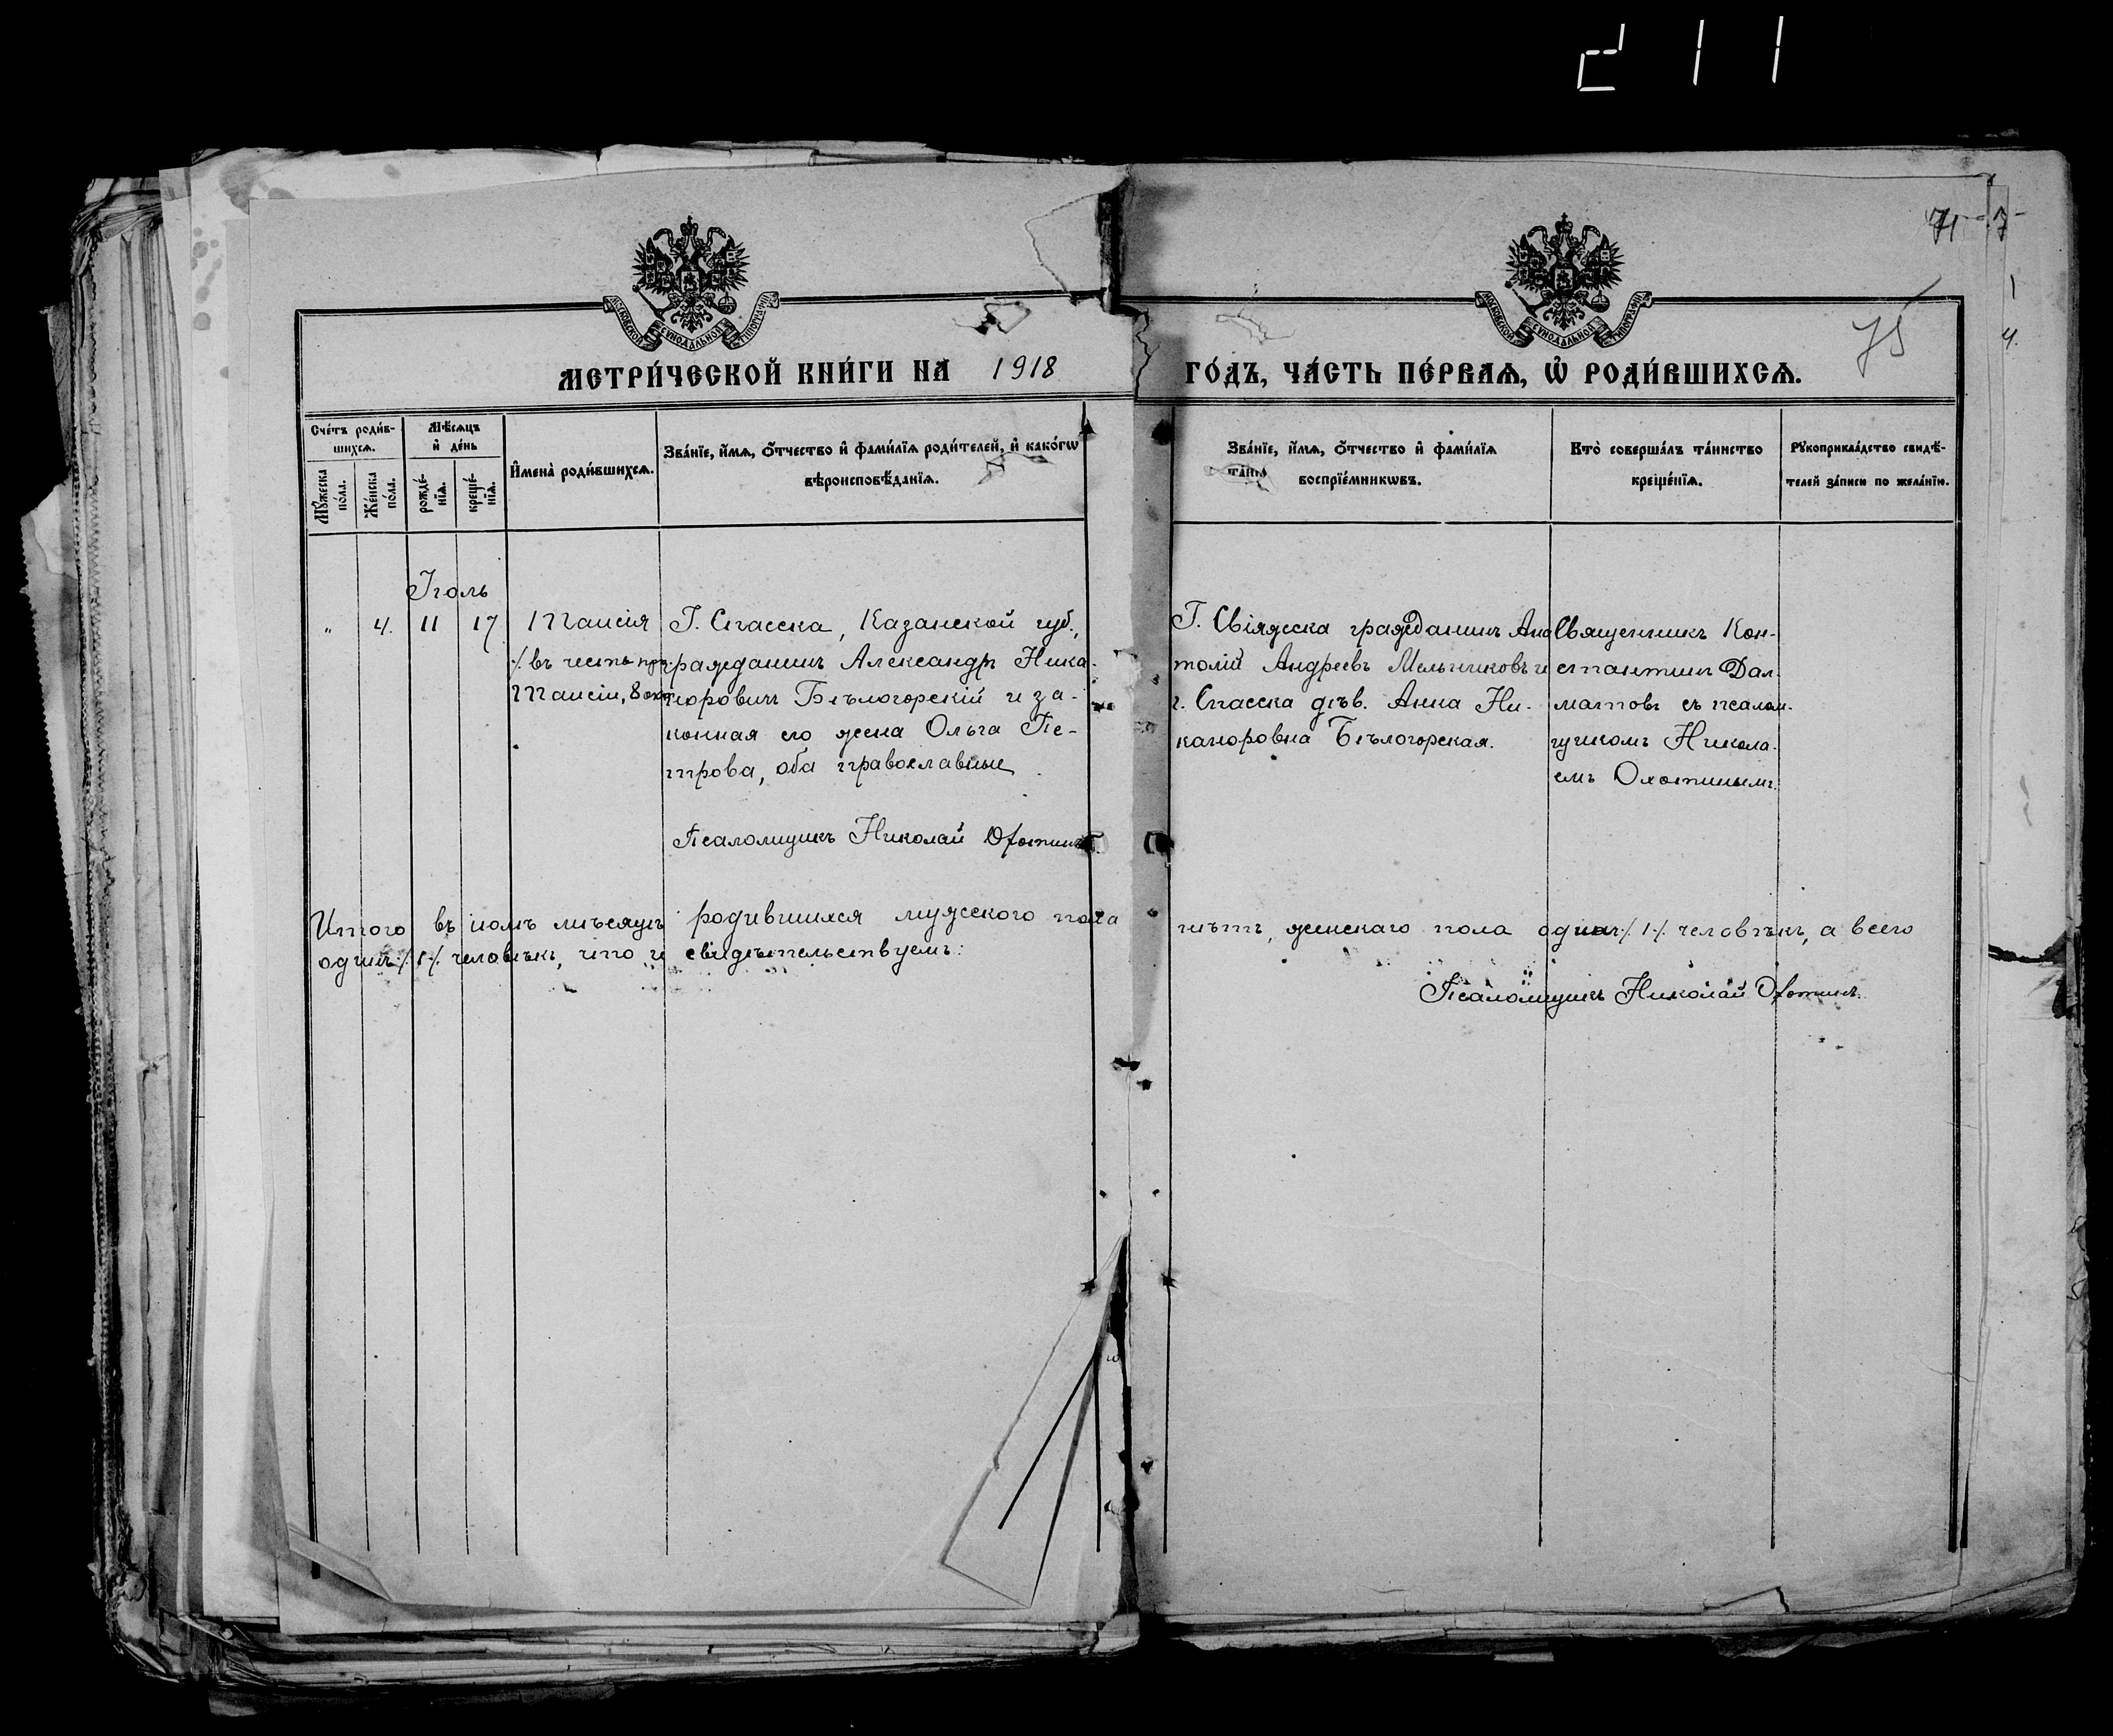 211
71
7
1
4.
75
МОСКОВСКОЙ СѴНОДАЛЬНОЙ ТИПОГРАФІИ
МОСКОВСКОЙ СѴНОДАЛЬНОЙ ТИПОГРАФІИ
МЕТРИ́ЧЕСКОЙ КНИ́ГИ НА 1918 ГО́ДЪ, ЧА́СТЬ ПЕ́РВАѦ, Ѡ҆ РОДИ́ВШИХСѦ.
Сче́тъ роди́в-
шихсѧ.
Мꙋ́жеска по́ла.
Же́нска по́ла.
Мѣ́сѧцъ
и҆ де́нь
рожде́-
нїѧ.
креще́-
нїѧ.
И҆мена̀ роди́вшихсѧ.
Зва́нїе, и҆́мѧ, ѻ҆́тчество и҆ фами́лїѧ роди́телей, и҆ како́гѡ
вѣроисповѣ́данїѧ.
Зва́нїе, и҆́мѧ, ѻ҆́тчество и҆ фами́лїѧ
воспрїе́мникѡвъ.
Кто̀ соверша́лъ та́инство
креще́нїѧ.
Рꙋкоприкла́дство свидѣ́-
телей за́писи по жела́нїю.
Іюль
„ 4. 11 17 Таисія
·/. въ честь прп.
Таисіи, 8 окт.
Г. Спасска, Казанской губ.,
гражданинъ Александръ Ника-
норовичъ Бѣлогорскій и за-
конная его жена Ольга Пе-
трова, оба православные
Псаломщикъ Николай Охотинъ.
Г. Свіяжска гражданинъ Ана
толій Андреевъ Мельниковъ и
г. Спасска дѣв. Анна Ни-
каноровна Бѣлогорская.
Священникъ Кон-
стантинъ Дал-
матовъ съ псалом-
щикомъ Никола-
емъ Охотинымъ.
Итого въ іюлѣ мѣсяцѣ родившихся мужского пола нѣтъ, женскаго пола одинъ ·/. 1 ·/. человѣкъ, а всего
одинъ ·/. 1 ·/. человѣкъ, что и свидѣтельствуемъ:
Псаломщикъ Николай Охотинъ.